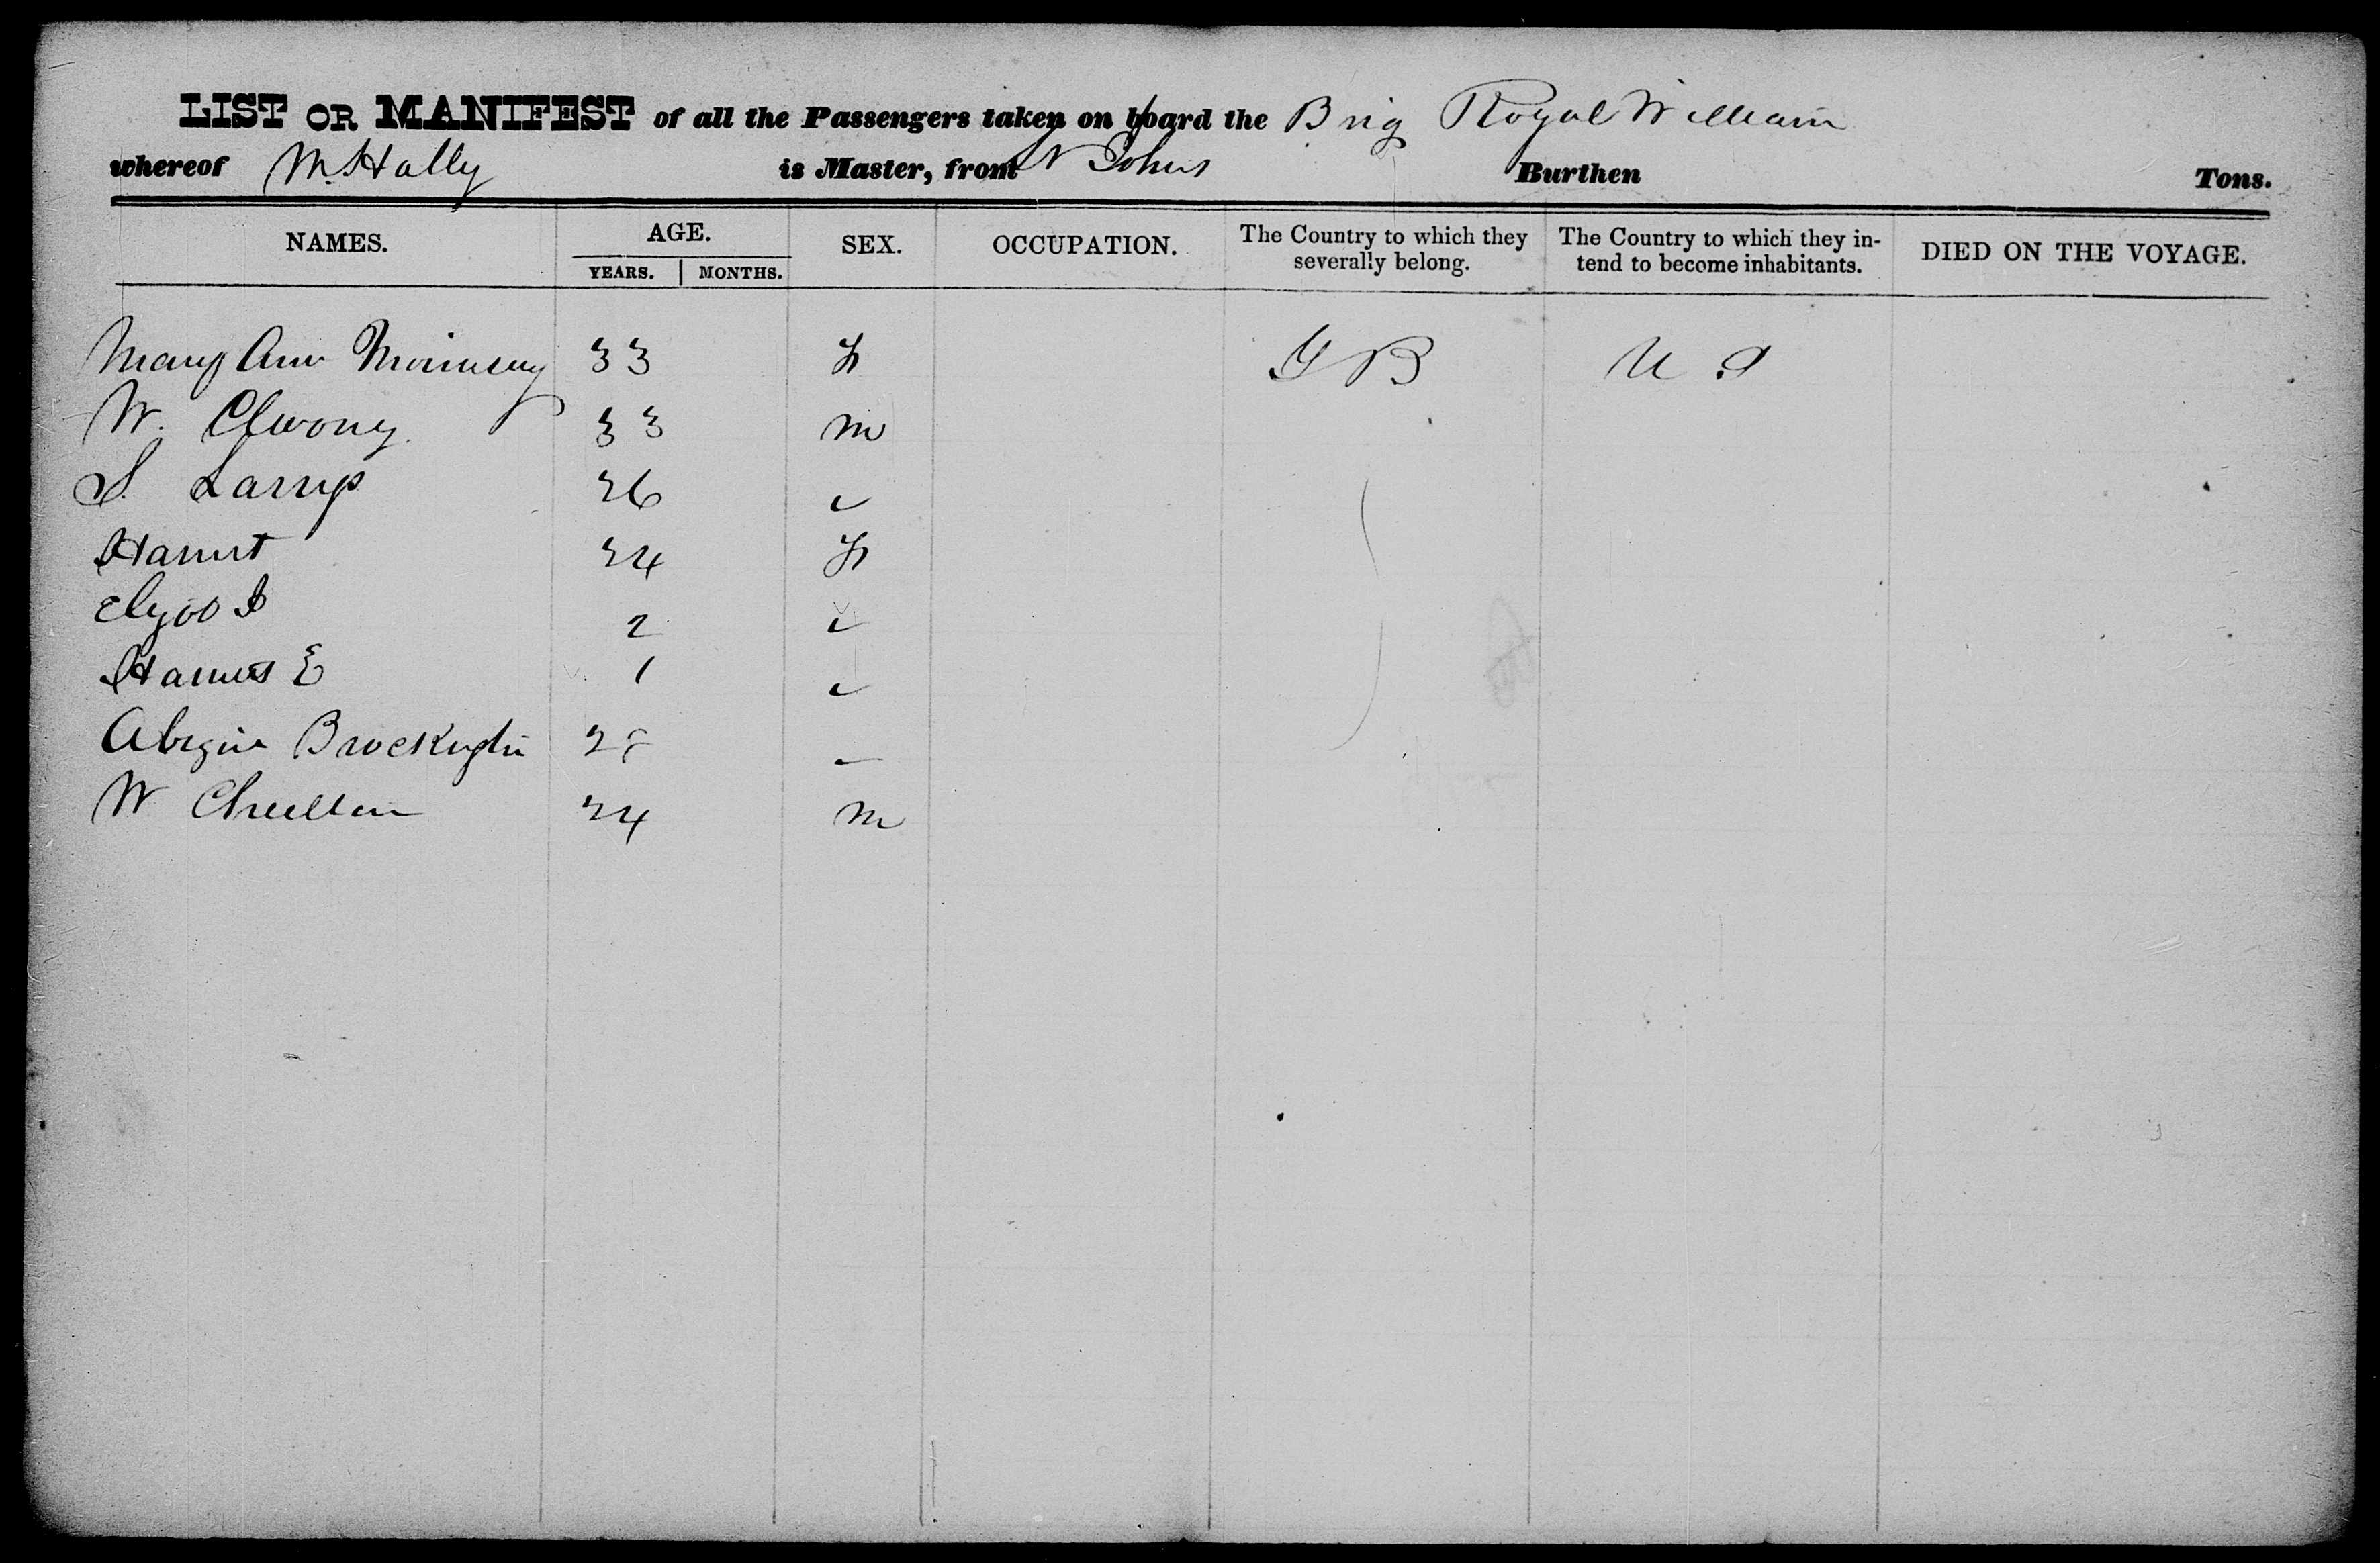 LIST OR MANIFEST of all the Passengers taken on board the Brig Royal William
whereof McHally is Master, from St Johns Burthen Tons.
NAMES. AGE. SEX. OCCUPATION. The Country to which they severally belong. The Country to which they in-tend to become inhabitants. DIED ON THE VOYAGE.
YEARS. MONTHS.
Mary Ann 33 F G B U S
W. 33 m
S. 26
Harriet 24 F
2
E 1
28
W 24 m